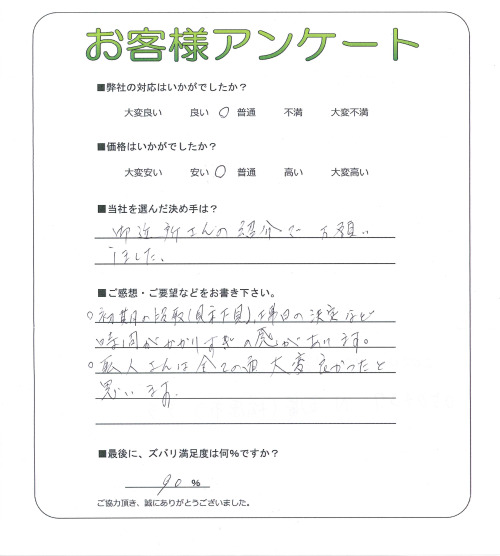 お客様アンケート
■弊社の対応はいかがでしたか？
大変良い 良い ○ 普通 不満 大変不満
■価格はいかがでしたか？
大変安い 安い ○ 普通 高い 大変高い
■当社を選んだ決め手は？
御近所さんの紹介でお願い
しました。
■ご感想・ご要望などをお書き下さい。
○初期の段取(見末下見)、工事日の決定など
時間がかかりすぎの感があります。
○職人さんは全ての面大変良かったと
思います。
■最後に、ズバリ満足度は何%ですか？
90 %
ご協力頂き、誠にありがとうございました。